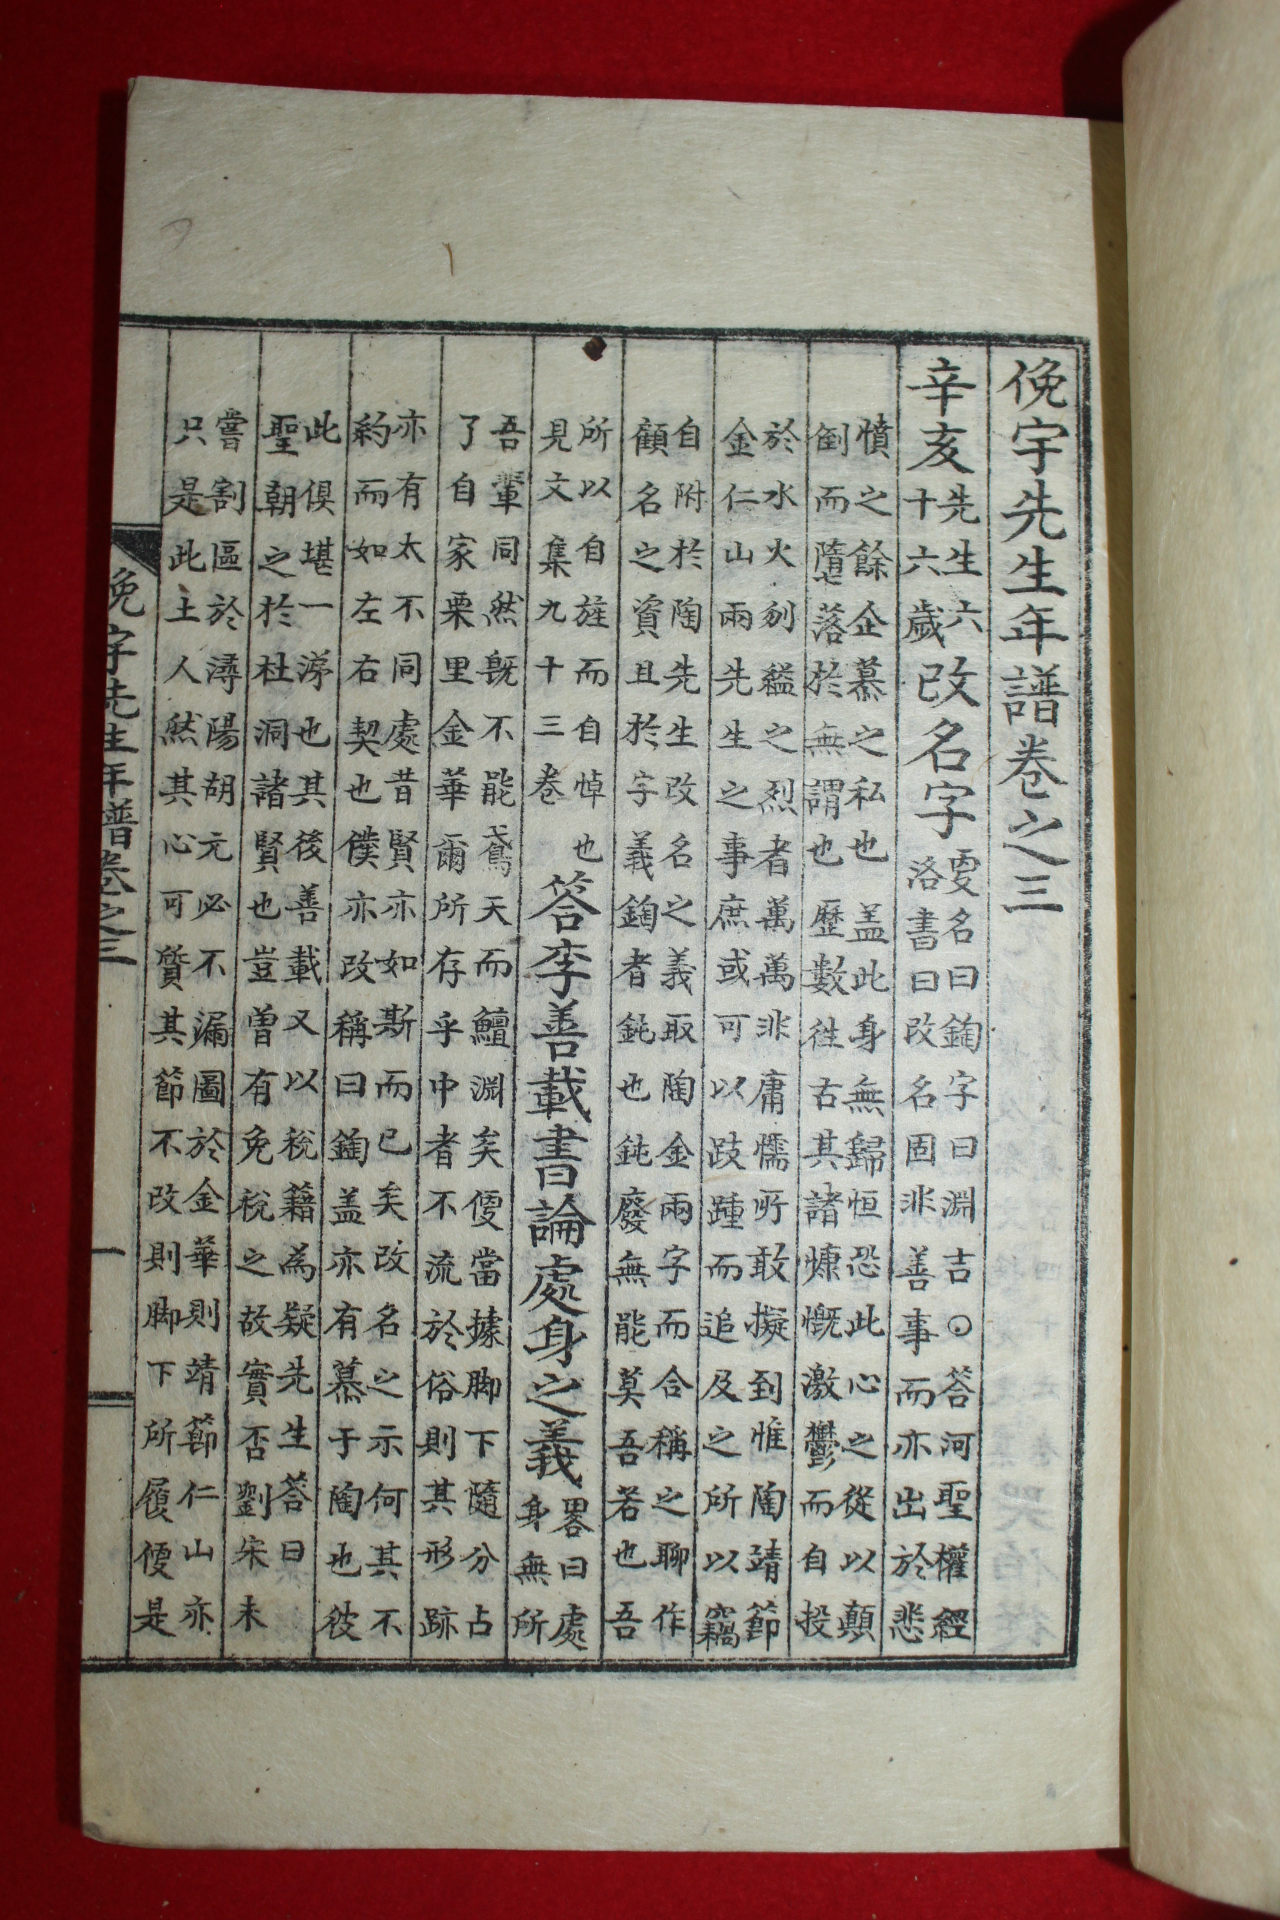 俛宇先生年譜卷之三
辛亥先生六十六歲改名字更名曰鋾字曰淵吉○答河聖權經洛書曰改名固非善事而亦出於悲
憤之餘企慕之私也盖此身無歸恒恐此心之從以顛倒而墮落於無謂也歷數徃古其諸慷慨激鬱而自投
於水火刎縊之烈者萬萬非庸懦所敢擬到惟陶靖節金仁山兩先生之事庶或可以跂踵而追及之所以竊
自附於陶先生改名之義取陶金兩字而合稱之聊作顧名之資且於字義鋾者鈍也鈍廢無能莫吾若也吾
所以自旌而自悼也見文集九十三卷答李善載書論處身之義畧曰處身無所
吾輩同然旣不能鳶天而鱣淵矣便當據脚下隨分占了自家栗里金華爾所存乎中者不流於俗則其形跡
亦有太不同處昔賢亦如斯而已矣改名之示何其不約而如左右契也僕亦改稱曰鋾盖亦有慕于陶也彼
此俱堪一涕也其後善載又以稅籍為疑先生答曰聖朝之於杜洞諸賢也豈曽有免稅之故實否劉宋未
嘗割區於潯陽胡元必不漏圖於金華則靖節仁山亦只是此土人然其心可質其節不改則脚下所履便是
俛宇先生年譜卷之三
一